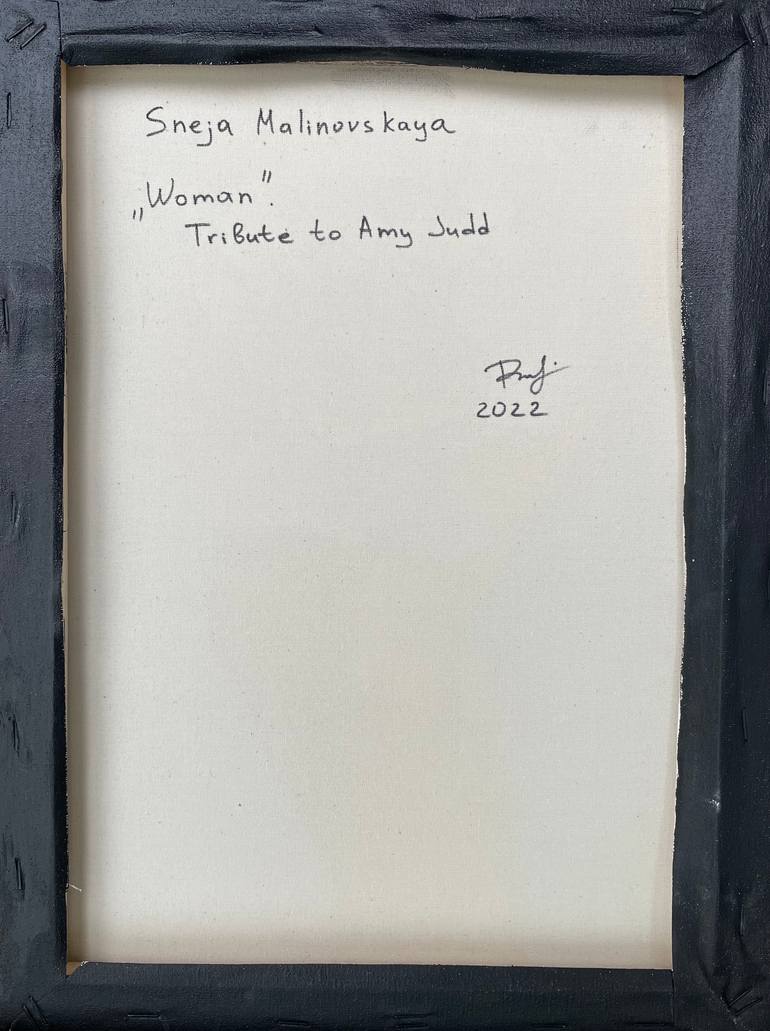 Sneja Malinovskaya
„Woman".
Tribute to Amy Judd
2022